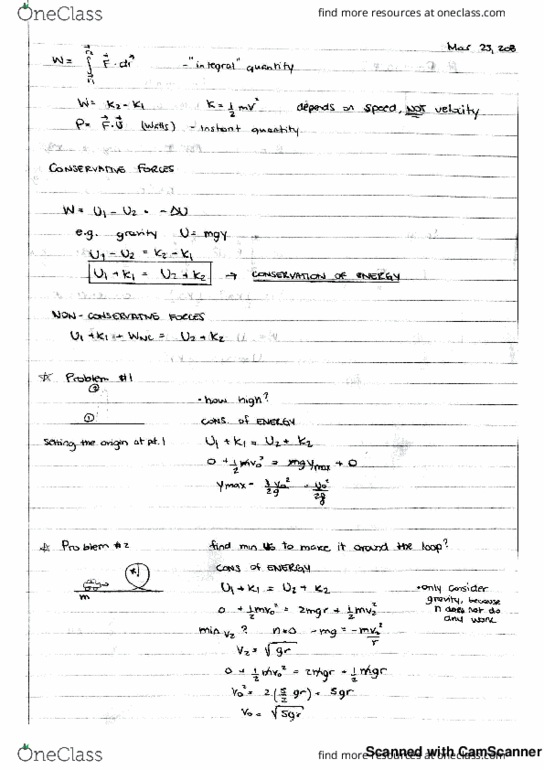 OneClass
find more resources at oneclass.com
Mar 23, 2018
W = ∫ F⃗ · dr⃗ - "integral" quantity
r⃗2
r⃗1
W = K2 - K1 K = 1/2 mv² depends on speed, NOT velocity
P = F⃗ · v⃗ (Watts) - instant quantity
CONSERVATIVE FORCES
W = U1 - U2 = -ΔU
e.g. gravity U = mgy
U1 - U2 = K2 - K1
U1 + K1 = U2 + K2 → CONSERVATION OF ENERGY
NON-CONSERVATIVE FORCES
U1 + K1 + WNC = U2 + K2
☆ Problem #1
②
• how high?
①
CONS. OF ENERGY
setting the origin at pt. 1 U1 + K1 = U2 + K2
0 + 1/2 mv0² = mgymax + 0
ymax = 1/2 v0²/g = v0²/2g
☆ Problem #2 find min to make it around the loop?
CONS OF ENERGY
m
U1 + K1 = U2 + K2
• only consider
gravity, because
n does not do
any work
0 + 1/2 mv0² = 2mgr + 1/2 mv2²
min v2? n=0 -mg = -mv2²/r
v2 = √gr
0 + 1/2 mv0² = 2mgr + 1/2 mgr
v0² = 2(5/2 gr) = 5gr
v0 = √5gr
Scanned with CamScanner
OneClass
find more resources at oneclass.com